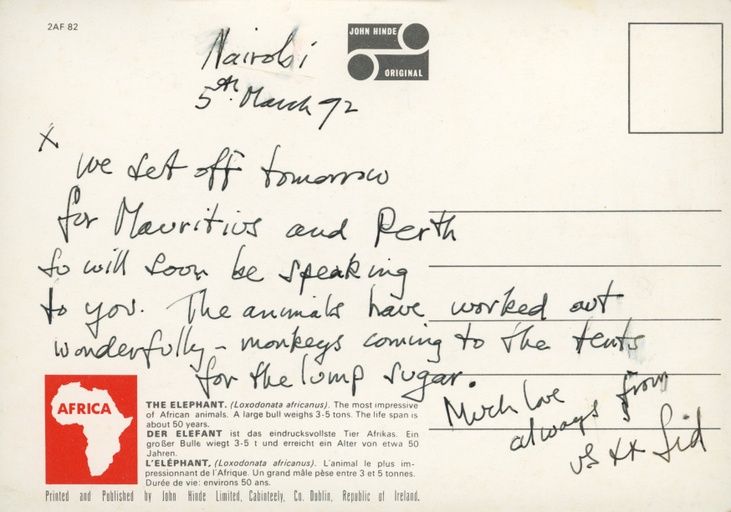 2AF 82
JOHN HINDE
ORIGINAL
Nairobi
5th March 92
x
we set off tomorrow
for Mauritius and Perth
so will soon be speaking
to you. The animals have worked out
wonderfully - monkeys coming to the tents
for the lump sugar.
Much love
always from
us xx Sid
AFRICA
THE ELEPHANT. (Loxodonta africanus). The most impressive
of African animals. A large bull weighs 3-5 tons. The life span is
about 50 years.
DER ELEFANT ist das eindrucksvollste Tier Afrikas. Ein
großer Bulle wiegt 3-5 t und erreicht ein Alter von etwa 50
Jahren.
L'ELÉPHANT, (Loxodonta africanus). L'animal le plus im-
pressionnant de l'Afrique. Un grand mâle pèse entre 3 et 5 tonnes.
Durée de vie: environs 50 ans.
Printed and Published by John Hinde Limited, Cabinteely, Co. Dublin, Republic of Ireland.